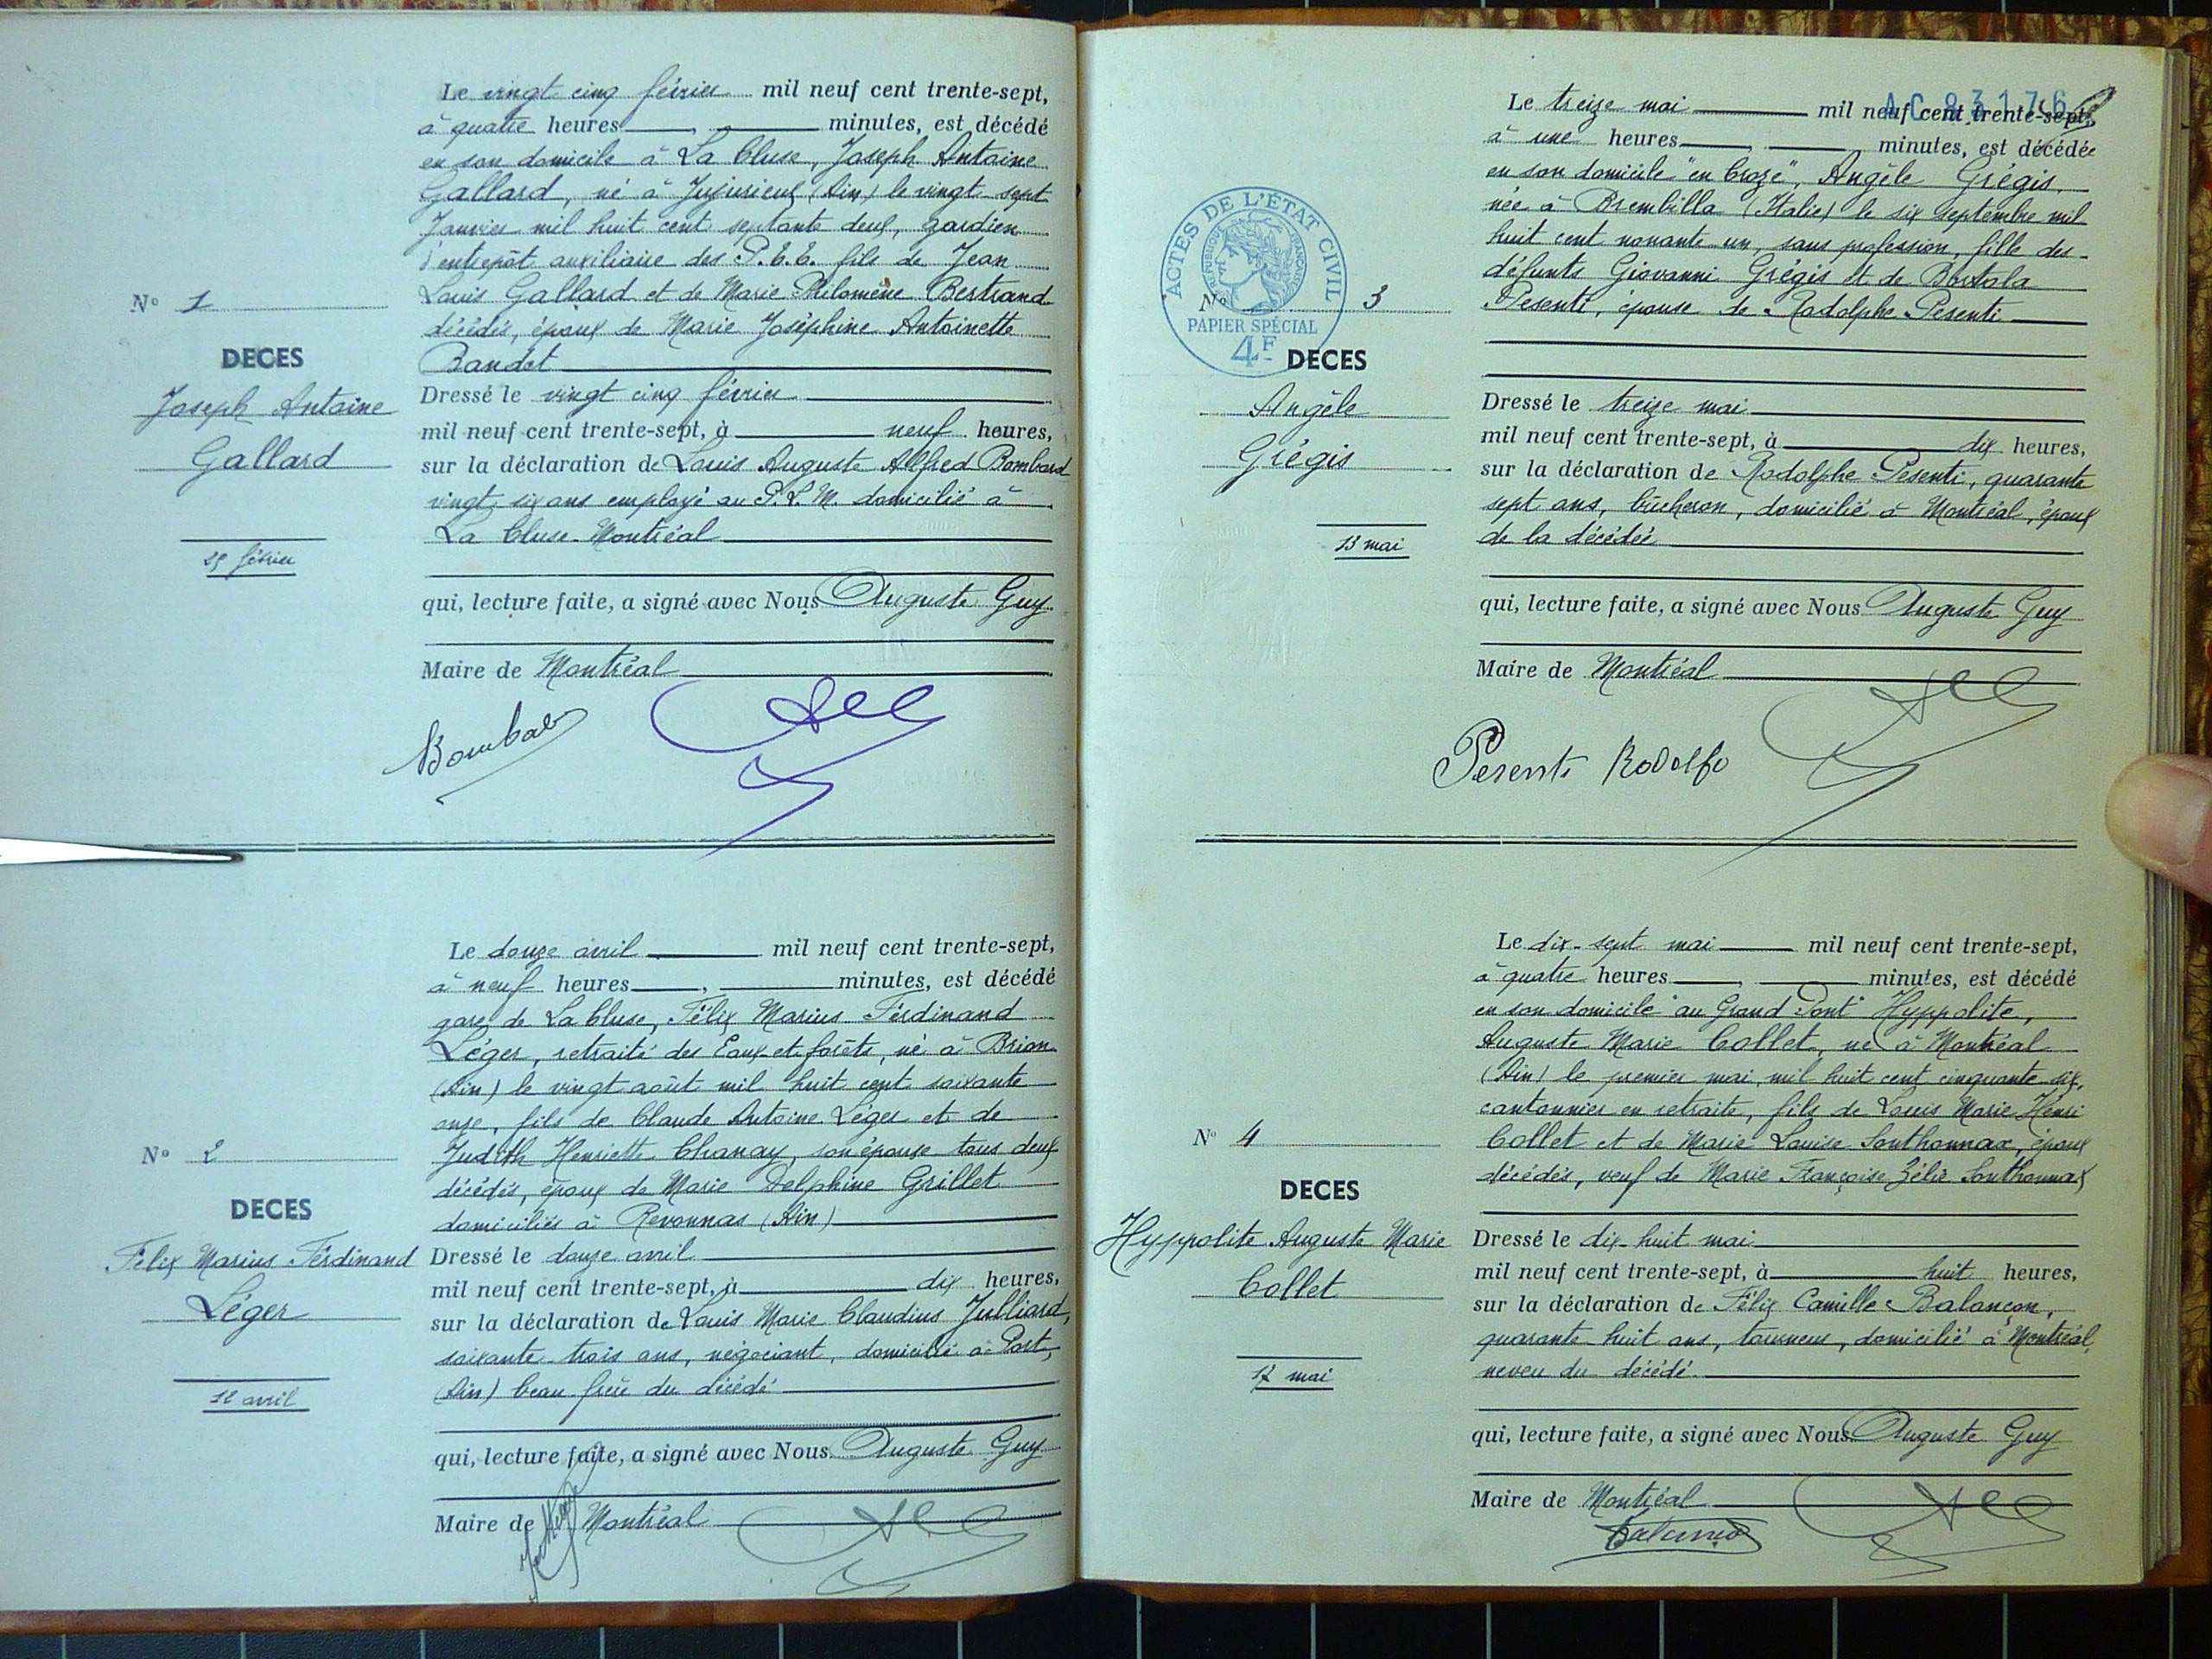 Le vingt cinq février mil neuf cent trente-sept,
à quatre heures, minutes, est décédé
en son domicile à La Cluse, Joseph Antoine
Gallard, né à Jujurieux (Ain) le vingt sept
Janvier mil huit cent septante deux, gardien
d'entrepôt auxiliaire des P.E.E. fils de Jean
Louis Gallard et de Marie Philomène Bertrand
décédés, époux de Marie Joséphine Antoinette
Bandet
Dressé le vingt cinq février
mil neuf cent trente-sept, à neuf heures,
sur la déclaration de Louis Auguste Alfred Bombard
vingt six ans employé au P.L.M. domicilié à
La Cluse-Montréal
qui, lecture faite, a signé avec Nous Auguste Guy
Maire de Montréal
N° 1
DECES
Joseph Antoine
Gallard
25 février
Le douze avril mil neuf cent trente-sept,
à neuf heures, minutes, est décédé
gare de La Cluse, Félix Marius Ferdinand
Léger, retraité des Eaux et forêts, né à Brion
(Ain) le vingt août mil huit cent soixante
onze, fils de Claude Antoine Léger et de
Judith Henriette Chanay, son épouse tous deux
décédés, époux de Marie Delphine Grillet
domiciliés à Revonnas (Ain)
Dressé le douze avril
mil neuf cent trente-sept, à dix heures,
sur la déclaration de Louis Marie Claudius Julliard,
soixante-trois ans, négociant, domicilié à Port,
(Ain) beau frère du décédé
qui, lecture faite, a signé avec Nous Auguste Guy
Maire de Montréal
N° 2
DECES
Félix Marius Ferdinand
Léger
12 avril
AC 83176
Le treize mai mil neuf cent trente-sept,
à une heures, minutes, est décédée
en son domicile "en Croze", Angèle Grégis,
née à Brembilla (Italie) le six septembre mil
huit cent nonante un, sans profession, fille des
défunts Giovanni Grégis et de Bortola
Pesenti, épouse de Rodolphe Pesenti
Dressé le treize mai
mil neuf cent trente-sept, à dix heures,
sur la déclaration de Rodolphe Pesenti, quarante
sept ans, bûcheron, domicilié à Montréal, époux
de la décédée
qui, lecture faite, a signé avec Nous Auguste Guy
Maire de Montréal
Pesenti Rodolfo
ACTES DE L'ÉTAT CIVIL
RÉPUBLIQUE FRANÇAISE
PAPIER SPÉCIAL
4F
N° 3
DECES
Angèle
Grégis
13 mai
Le dix-sept mai mil neuf cent trente-sept,
à quatre heures, minutes, est décédé
en son domicile "au Grand Pont" Hyppolite,
Auguste Marie Collet, né à Montréal
(Ain) le premier mai mil huit cent cinquante six,
cantonnier en retraite, fils de Louis Marie Henri
Collet et de Marie Louise Southonnax, époux
décédés, veuf de Marie Françoise Zélie Southonnax
Dressé le dix-huit mai
mil neuf cent trente-sept, à huit heures,
sur la déclaration de Félix Camille Balançon,
quarante huit ans, tourneur, domicilié à Montréal,
neveu du décédé.
qui, lecture faite, a signé avec Nous Auguste Guy
Maire de Montréal
N° 4
DECES
Hyppolite Auguste Marie
Collet
17 mai